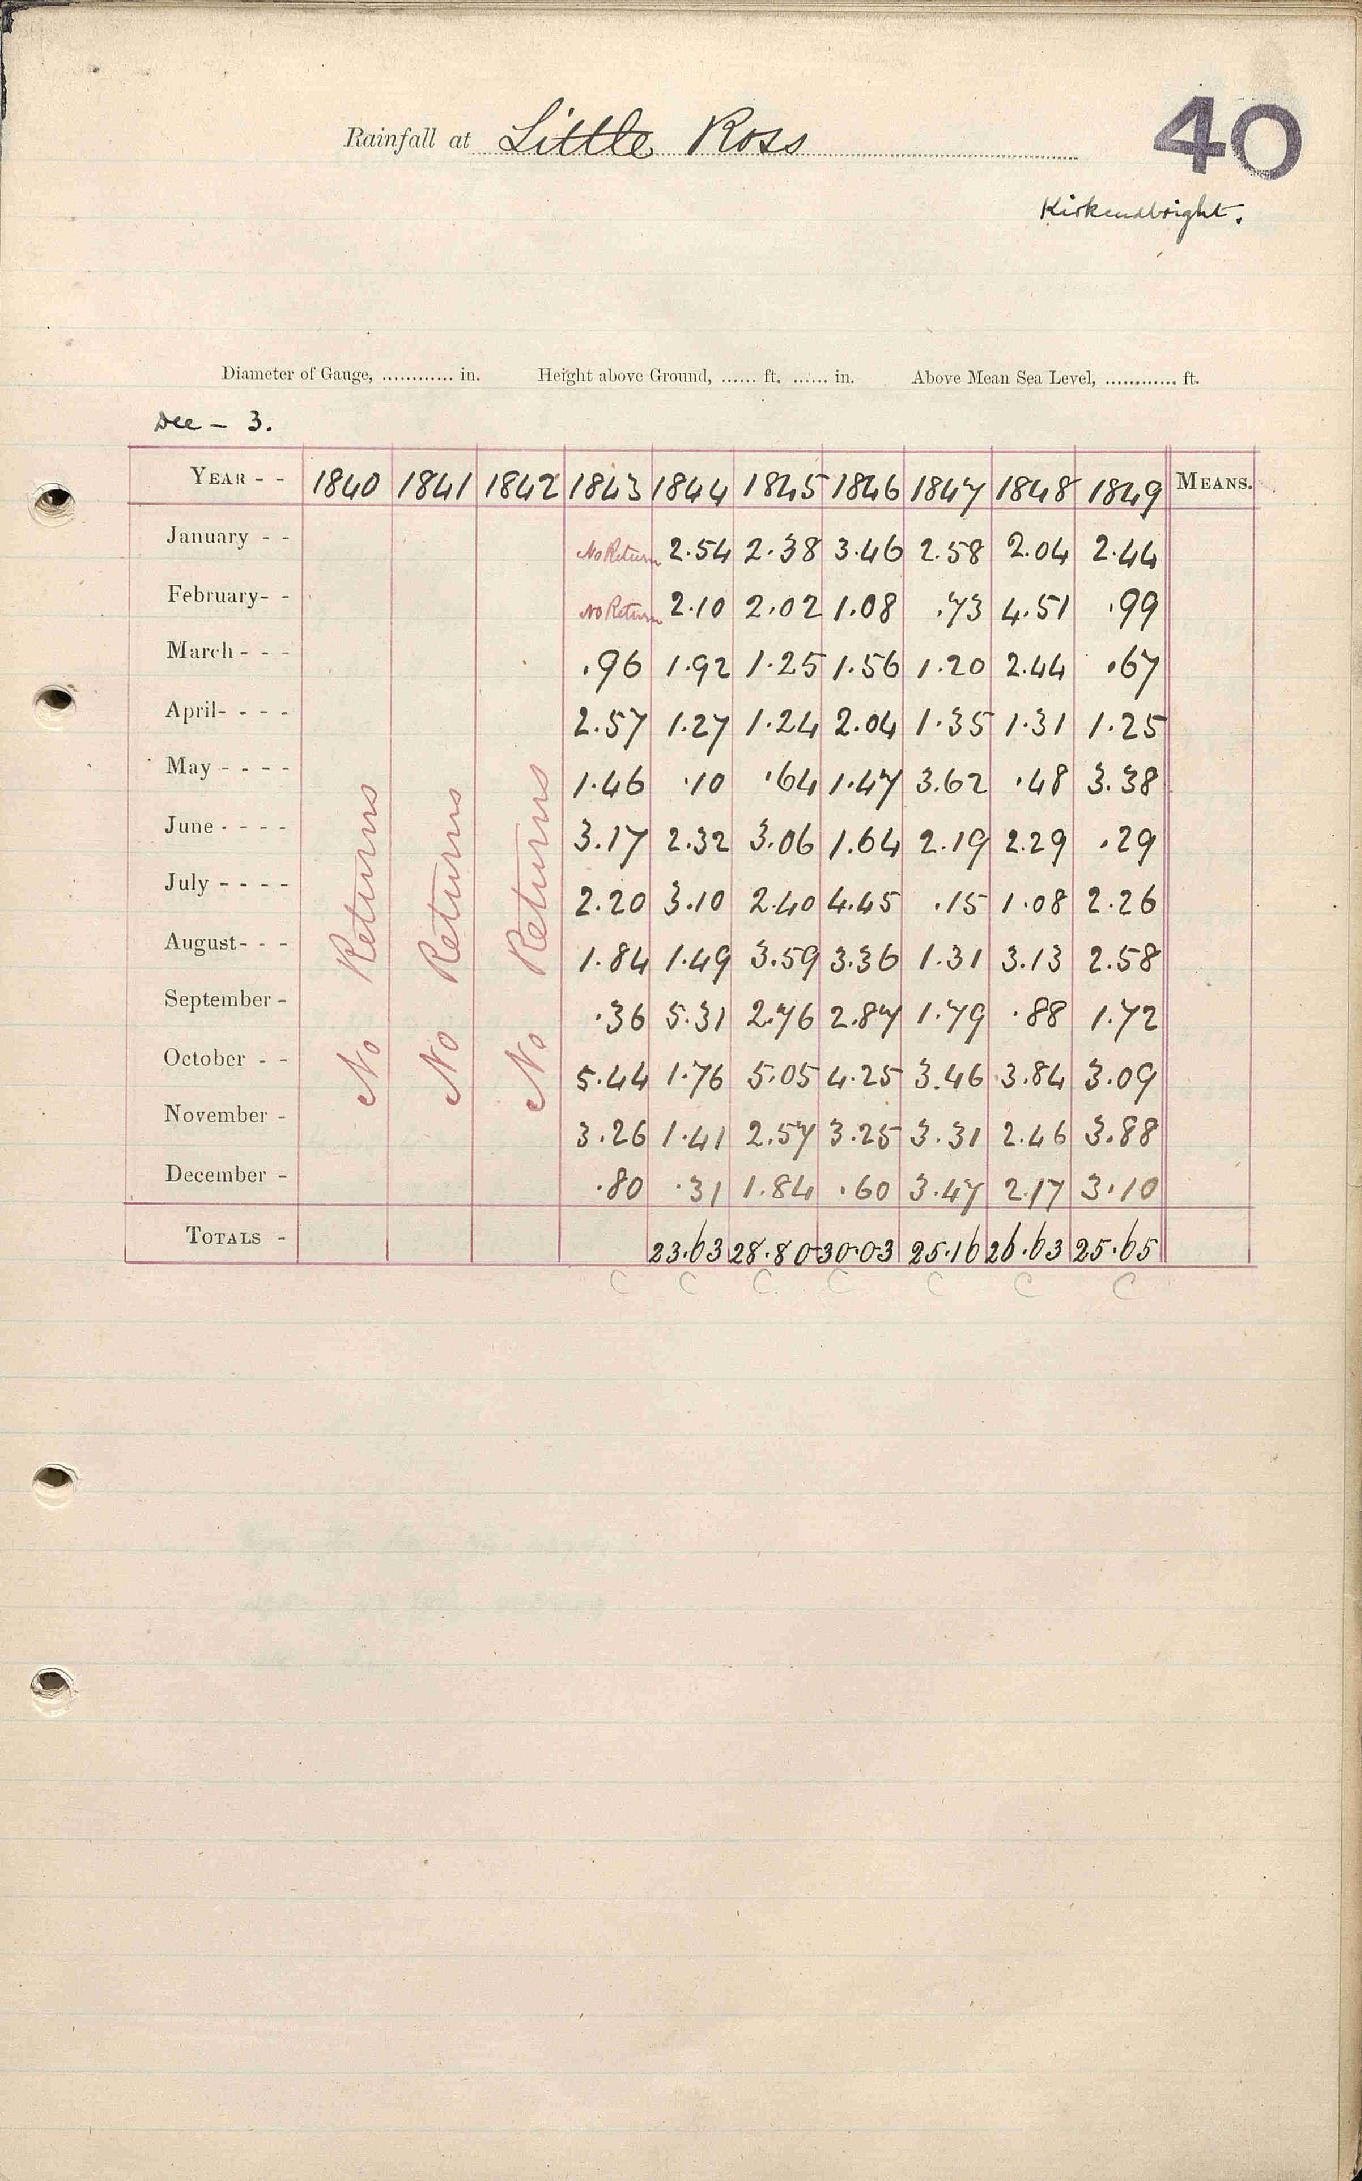 Rainfall at Little Ross
40
Kirkcudbright.
Diameter of Gauge, ............ in. Height above Ground, ...... ft. ...... in. Above Mean Sea Level, ............ ft.
Dee - 3.
YEAR - - 1840 1841 1842 1843 1844 1845 1846 1847 1848 1849 MEANS.
January - - No Return 2.54 2.38 3.46 2.58 2.04 2.44
February- - No Return 2.10 2.02 1.08 .73 4.51 .99
March - - - .96 1.92 1.25 1.56 1.20 2.44 .67
April- - - - 2.57 1.27 1.24 2.04 1.35 1.31 1.25
May - - - - 1.46 .10 .64 1.47 3.62 .48 3.38
June - - - - 3.17 2.32 3.06 1.64 2.19 2.29 .29
July - - - - 2.20 3.10 2.40 4.45 .15 1.08 2.26
August- - - 1.84 1.49 3.59 3.36 1.31 3.13 2.58
September - .36 5.31 2.76 2.87 1.79 .88 1.72
October - - 5.44 1.76 5.05 4.25 3.46 3.84 3.09
November - 3.26 1.41 2.57 3.25 3.31 2.46 3.88
December - .80 .31 1.84 .60 3.47 2.17 3.10
No Returns
No Returns
No Returns
TOTALS - 23.63 28.80 30.03 25.16 26.63 25.65
C C C. C C C C